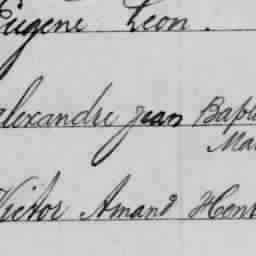 Eugene Leon.
alexandre jean Bap
Ma
Victor Amand Hen